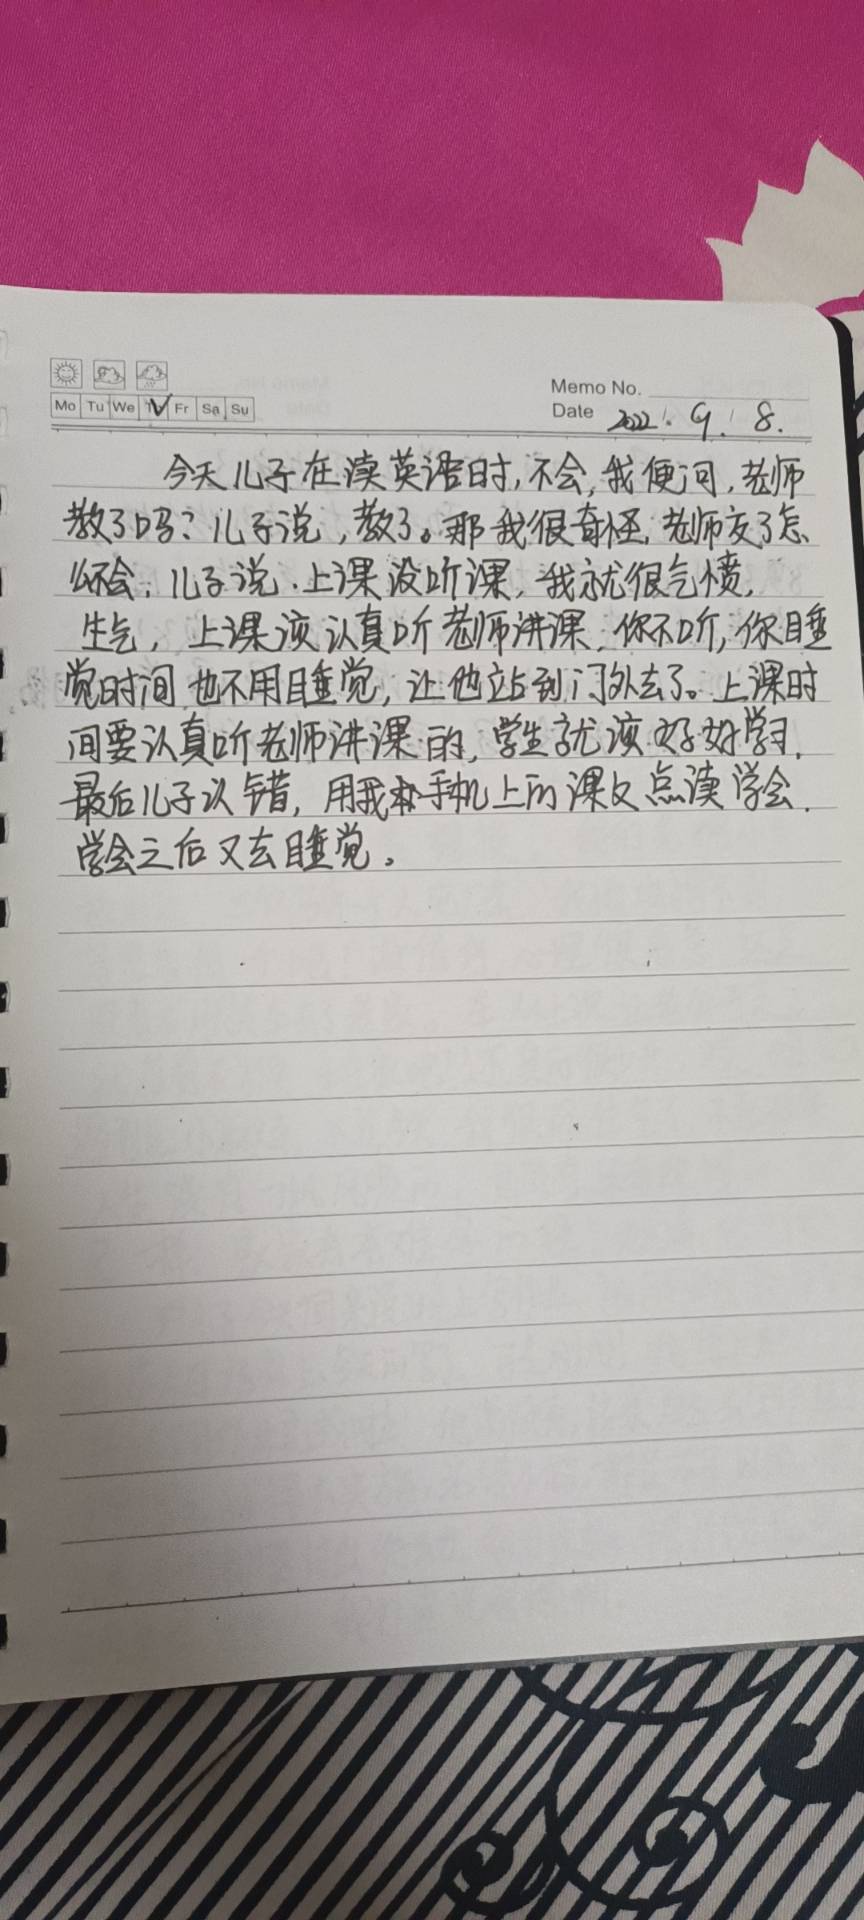 Memo No.
Mo Tu We Th Fr Sa Su
Date 2022.9.8.
今天儿子在读英语时,不会,我便问,老师
教了吗?儿子说,教了。那我很奇怪,老师教了怎
么不会,儿子说.上课没听课,我就很气愤,
生气,上课该认真听老师讲课,你不听,你睡
觉时间也不用睡觉,让他站到门外去了。上课时
间要认真听老师讲课的,学生就该好好学习.
最后儿子认错,用我手机上的课文点读学会.
学会之后又去睡觉。